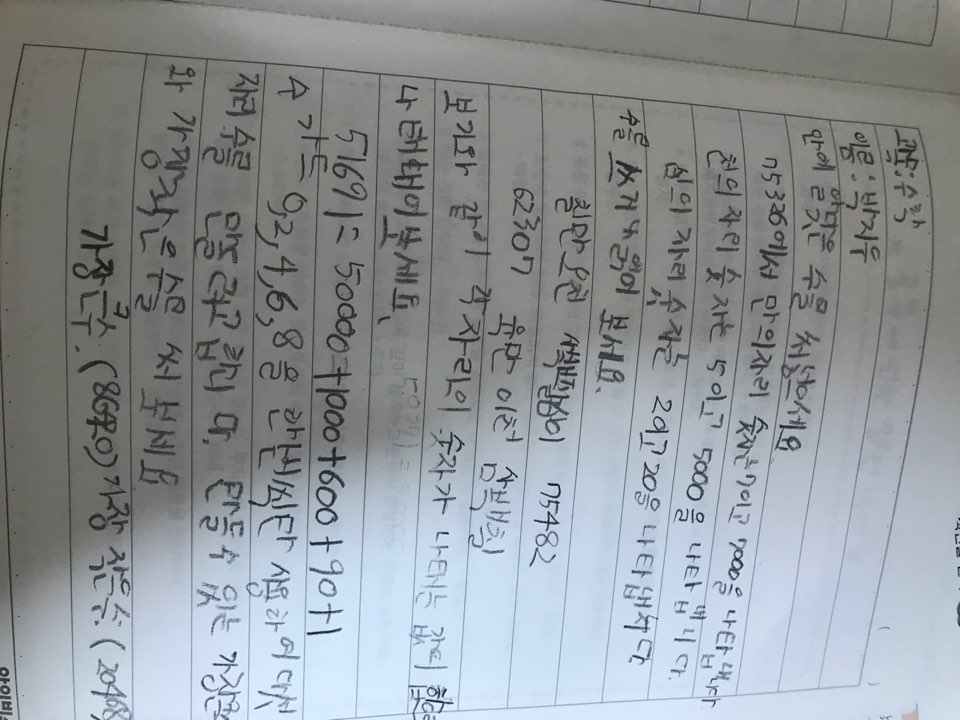 과목:수학
이름:박지우
안에 알맞은 수을 써넣으세요
75326에서 만의자리 숫자는7이고 70000을 나타냅니다
천의자리 숫자는 5이고 5000을 나타냅니다.
십의 자리 숫자는 2이고 20을 나타냅니다.
수을 쓰거나 읽어 보세요.
칠만 오천 사백팔십이 75482
62307 육만 이천 삼백칠
보기와 같이 각 자리의 숫자가 나타는 값의 합으로
나타태어보세요.
51691= 50000+1000+600+90+1
수 가드 0,2,4,6,8을 한번씩만 사용하여 다섯
자리 수를 만들려고 합니다. 만들수 있는 가장큰
와 가장작은수을 써 보세요
가장큰수.(86420)가장 작은수.(20468